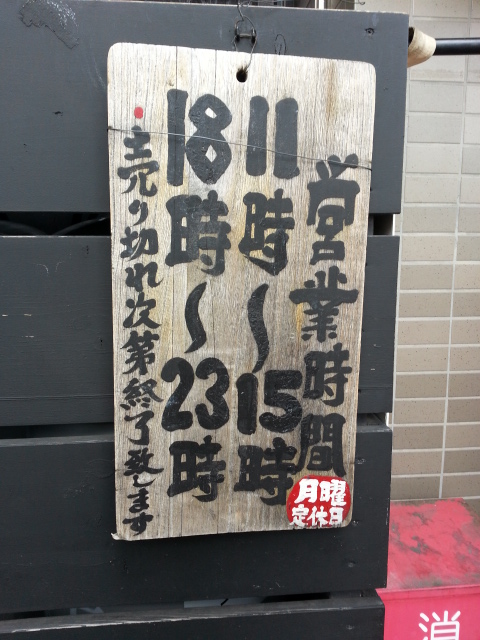 営業時間
11時〜15時
18時〜23時
売り切れ次第終了致します
月曜
定休日
消